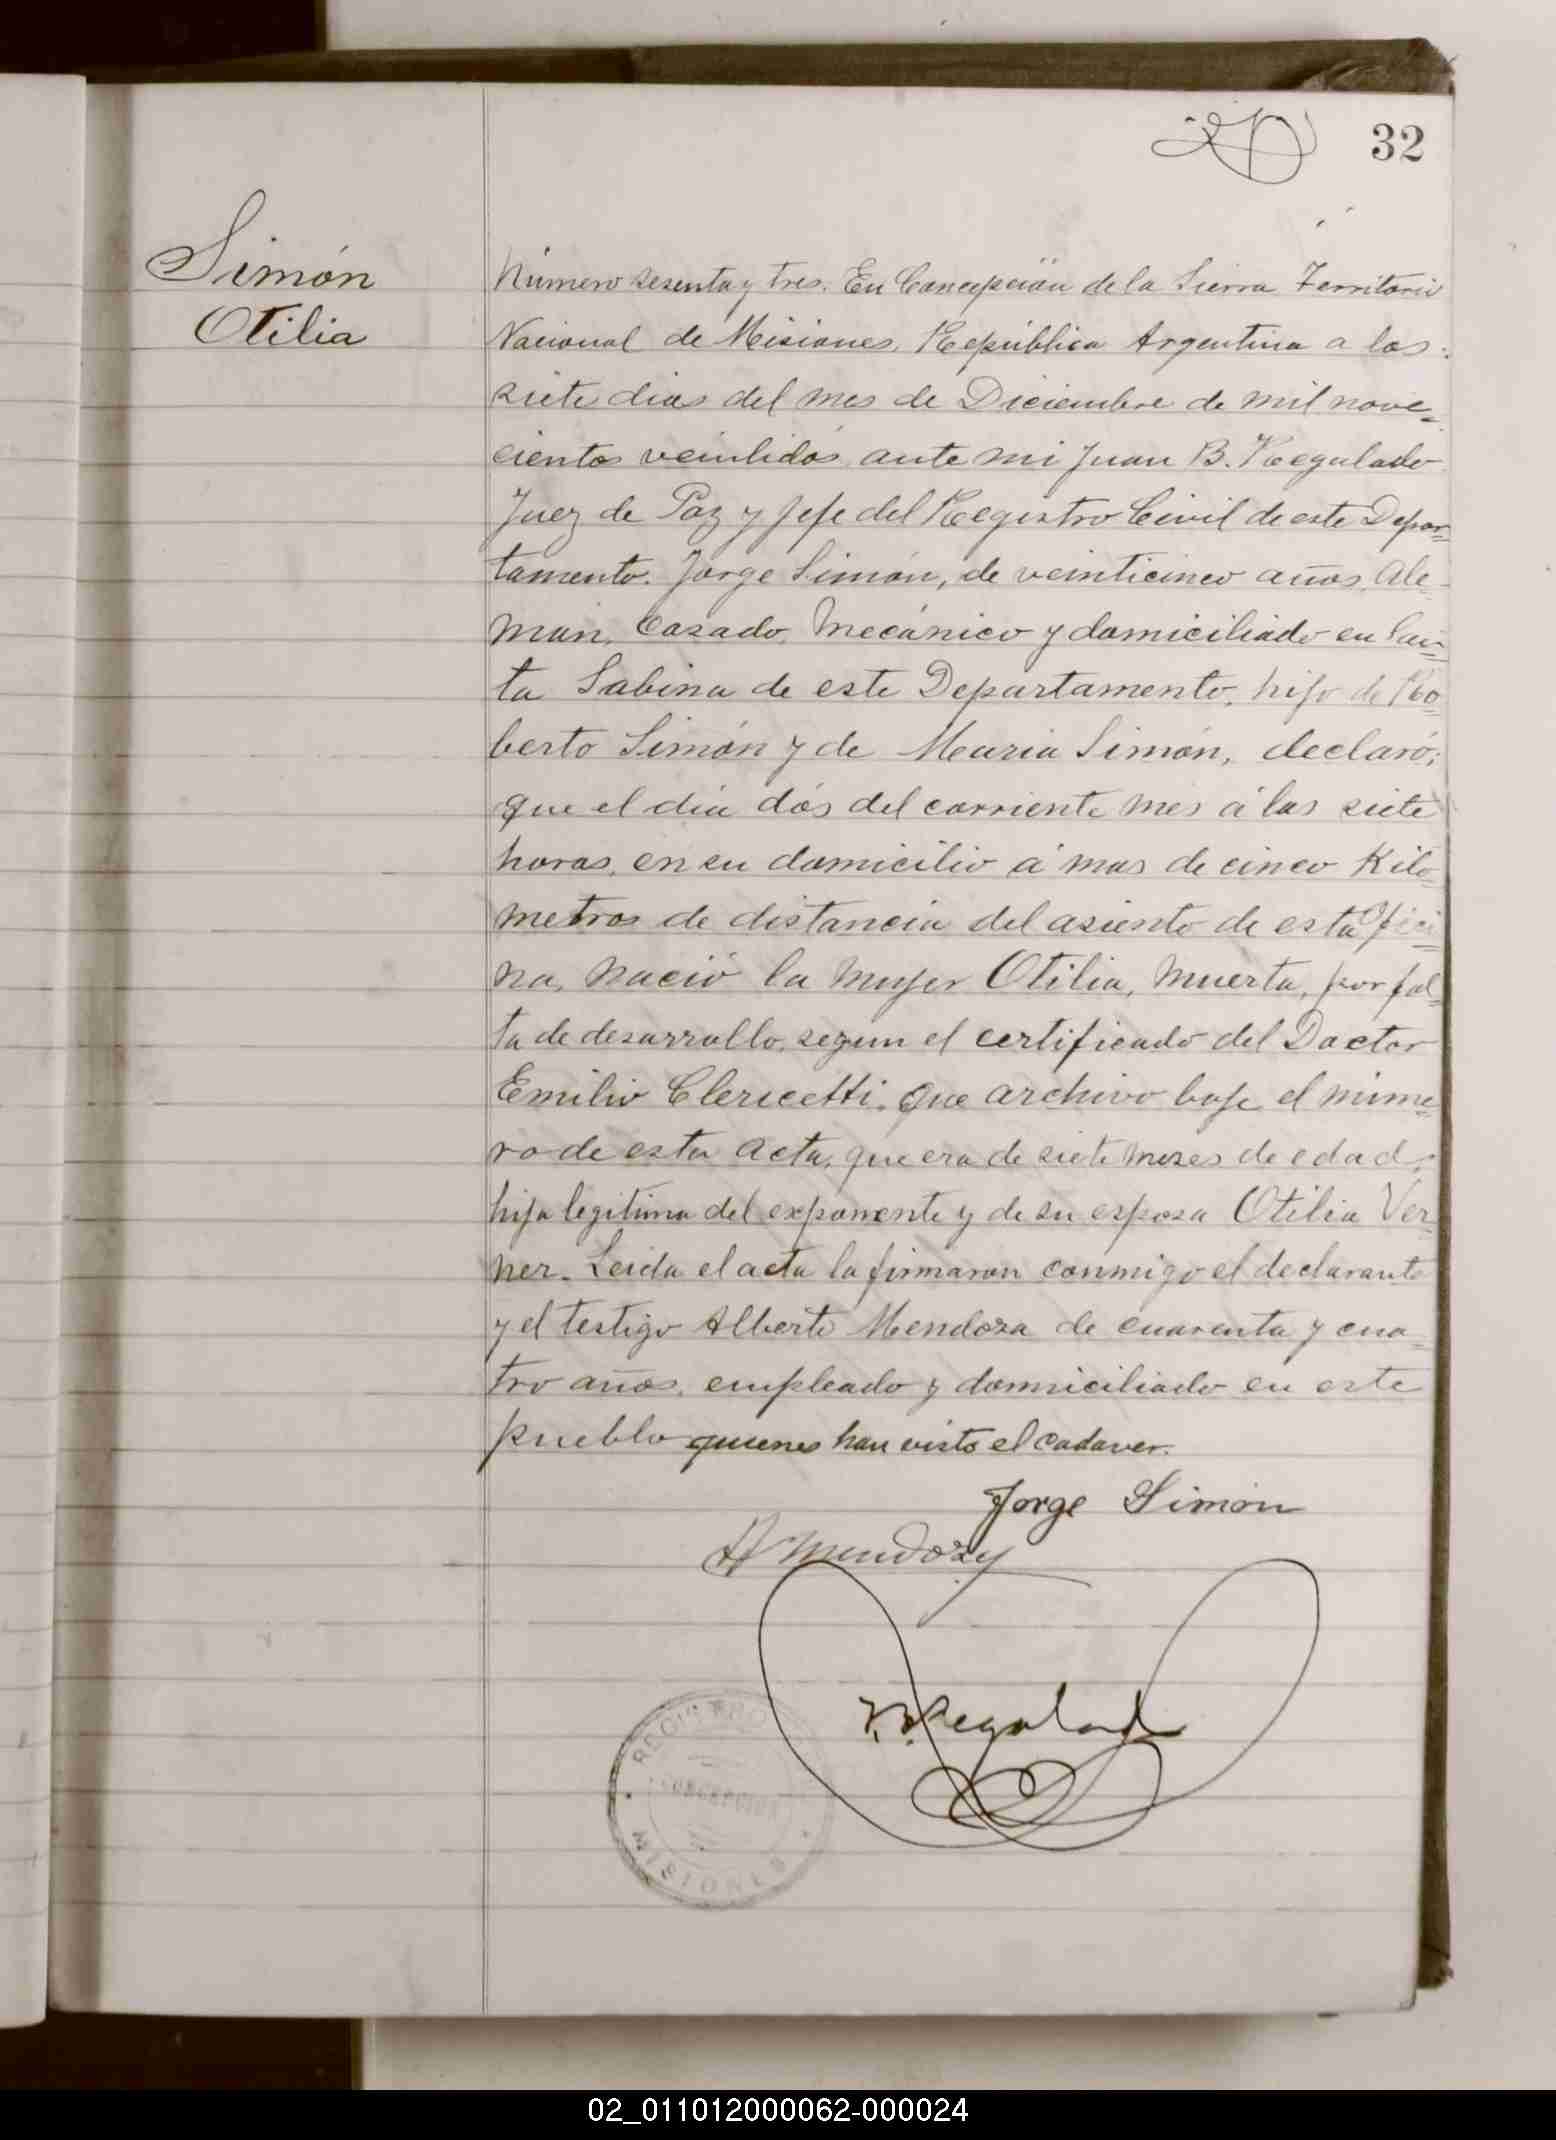 32
Simón
Otilia
Número sesenta y tres. En Concepción de la Sierra Territorio
Nacional de Misiones, República Argentina a los
siete dias del mes de Diciembre de mil nove=
cientos veintidós, ante mi Juan B. Regalado
Juez de Paz y Jefe del Registro Civil de este Depar=
tamento. Jorge Simón, de veinticinco años, Ale-
mán, Casado, Mecánico y domiciliado en San=
ta Sabina de este Departamento, hijo de Ro=
berto Simón y de Maria Simón, declaró;
que el día dós del corriente mes á las siete
horas, en su domicilio á mas de cinco Kilo=
metros de distancia del asiento de esta Ofici=
na, nació la mujer Otilia, muerta, por fal=
ta de desarrollo, segun el certificado del Doctor
Emilio Clericetti. que archivo bajo el núme=
ro de esta acta, que era de siete meses de edad,
hija legítima del exponente y de su esposa Otilia Ver=
ner. Leida el acta la firmaron conmigo el declarante
y el testigo Alberto Mendoza de cuarenta y cua-
tro años, empleado y domiciliado en este
pueblo quienes han visto el cadaver.
Jorge Simón
A Mendoza
Regalado
REGISTRO
CONCEPCION
MISIONES
02_011012000062-000024